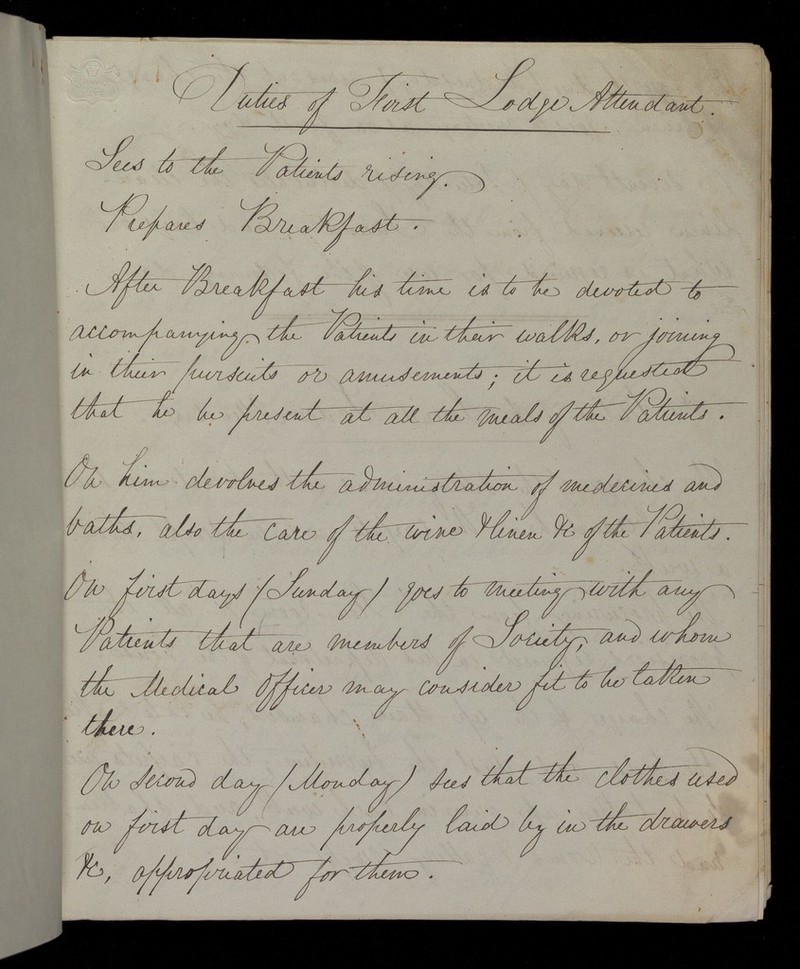 Duties of First Lodge Attendant.
Sees to the Patients rising.
Prepares Breakfast.
After Breakfast his time is to be devoted to
accompanying the Patients in their walks, or joining
in their pursuits or amusements; it is requested
that he be present at all the meals of the Patients.
On him devolves the administration of medecines and
baths, also the care of the wine & linen &c of the Patients.
On first days (Sunday) goes to meeting with any
Patients that are members of Society, and whom
the Medical Officer may consider fit to be taken
there.
On second day (Monday) sees that the clothes used
on first day are properly laid by in the drawers
&c, appropriated for them.